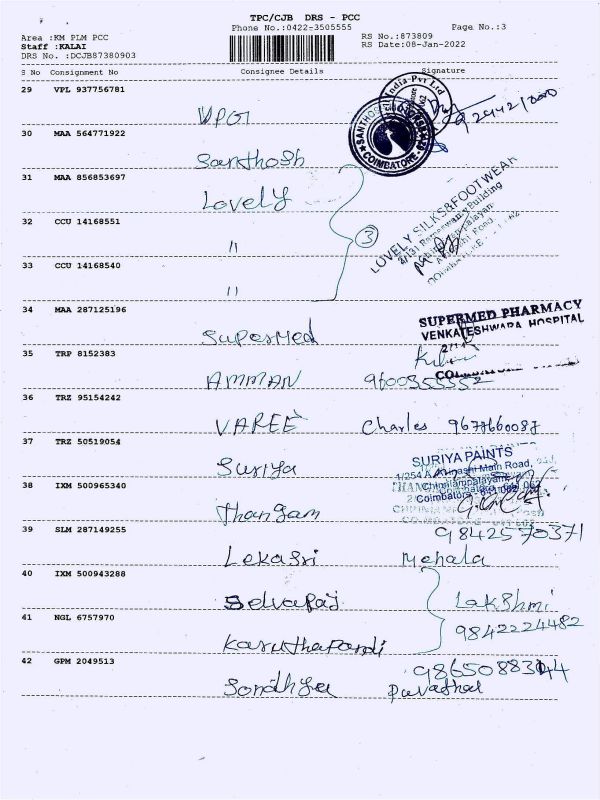 TPC/CJB DRS - PCC
Phone No.:0422-3505555
Page No.:3
Area :KM PLM PCC
RS No.:873809
Staff :KALAI
RS Date:08-Jan-2022
DRS No. :DCJB87380903
S No Consignment No Consignee Details Signature
29 VPL 937756781
VPGI
30 MAA 564771922
Santhosh
SANTHOSH India Pvt Ltd
COIMBATORE
31 MAA 856853697
Lovely
LOVELY SILKS&FOOTWEAR
8/131 Ramaswamy Building
32 CCU 14168551
"
3
33 CCU 14168540
"
34 MAA 287125196
Supermed
SUPERMED PHARMACY
VENKATESHWARA HOSPITAL
35 TRP 8152383
AMMAN 9600355552
36 TRZ 95154242
VAREE Charles 9677660087
37 TRZ 50519054
Suriya
SURIYA PAINTS
1/254 A Avinashi Main Road,
Chinniampalayam
Coimbatore - 641 062
38 IXM 500965340
Thangam
39 SLM 287149255
9842570371
Lekasri Mehala
40 IXM 500943288
Selvaraj Lakshmi
41 NGL 6757970
9842224482
Karuthapandi
42 GPM 2049513
Sondhya Pavathal